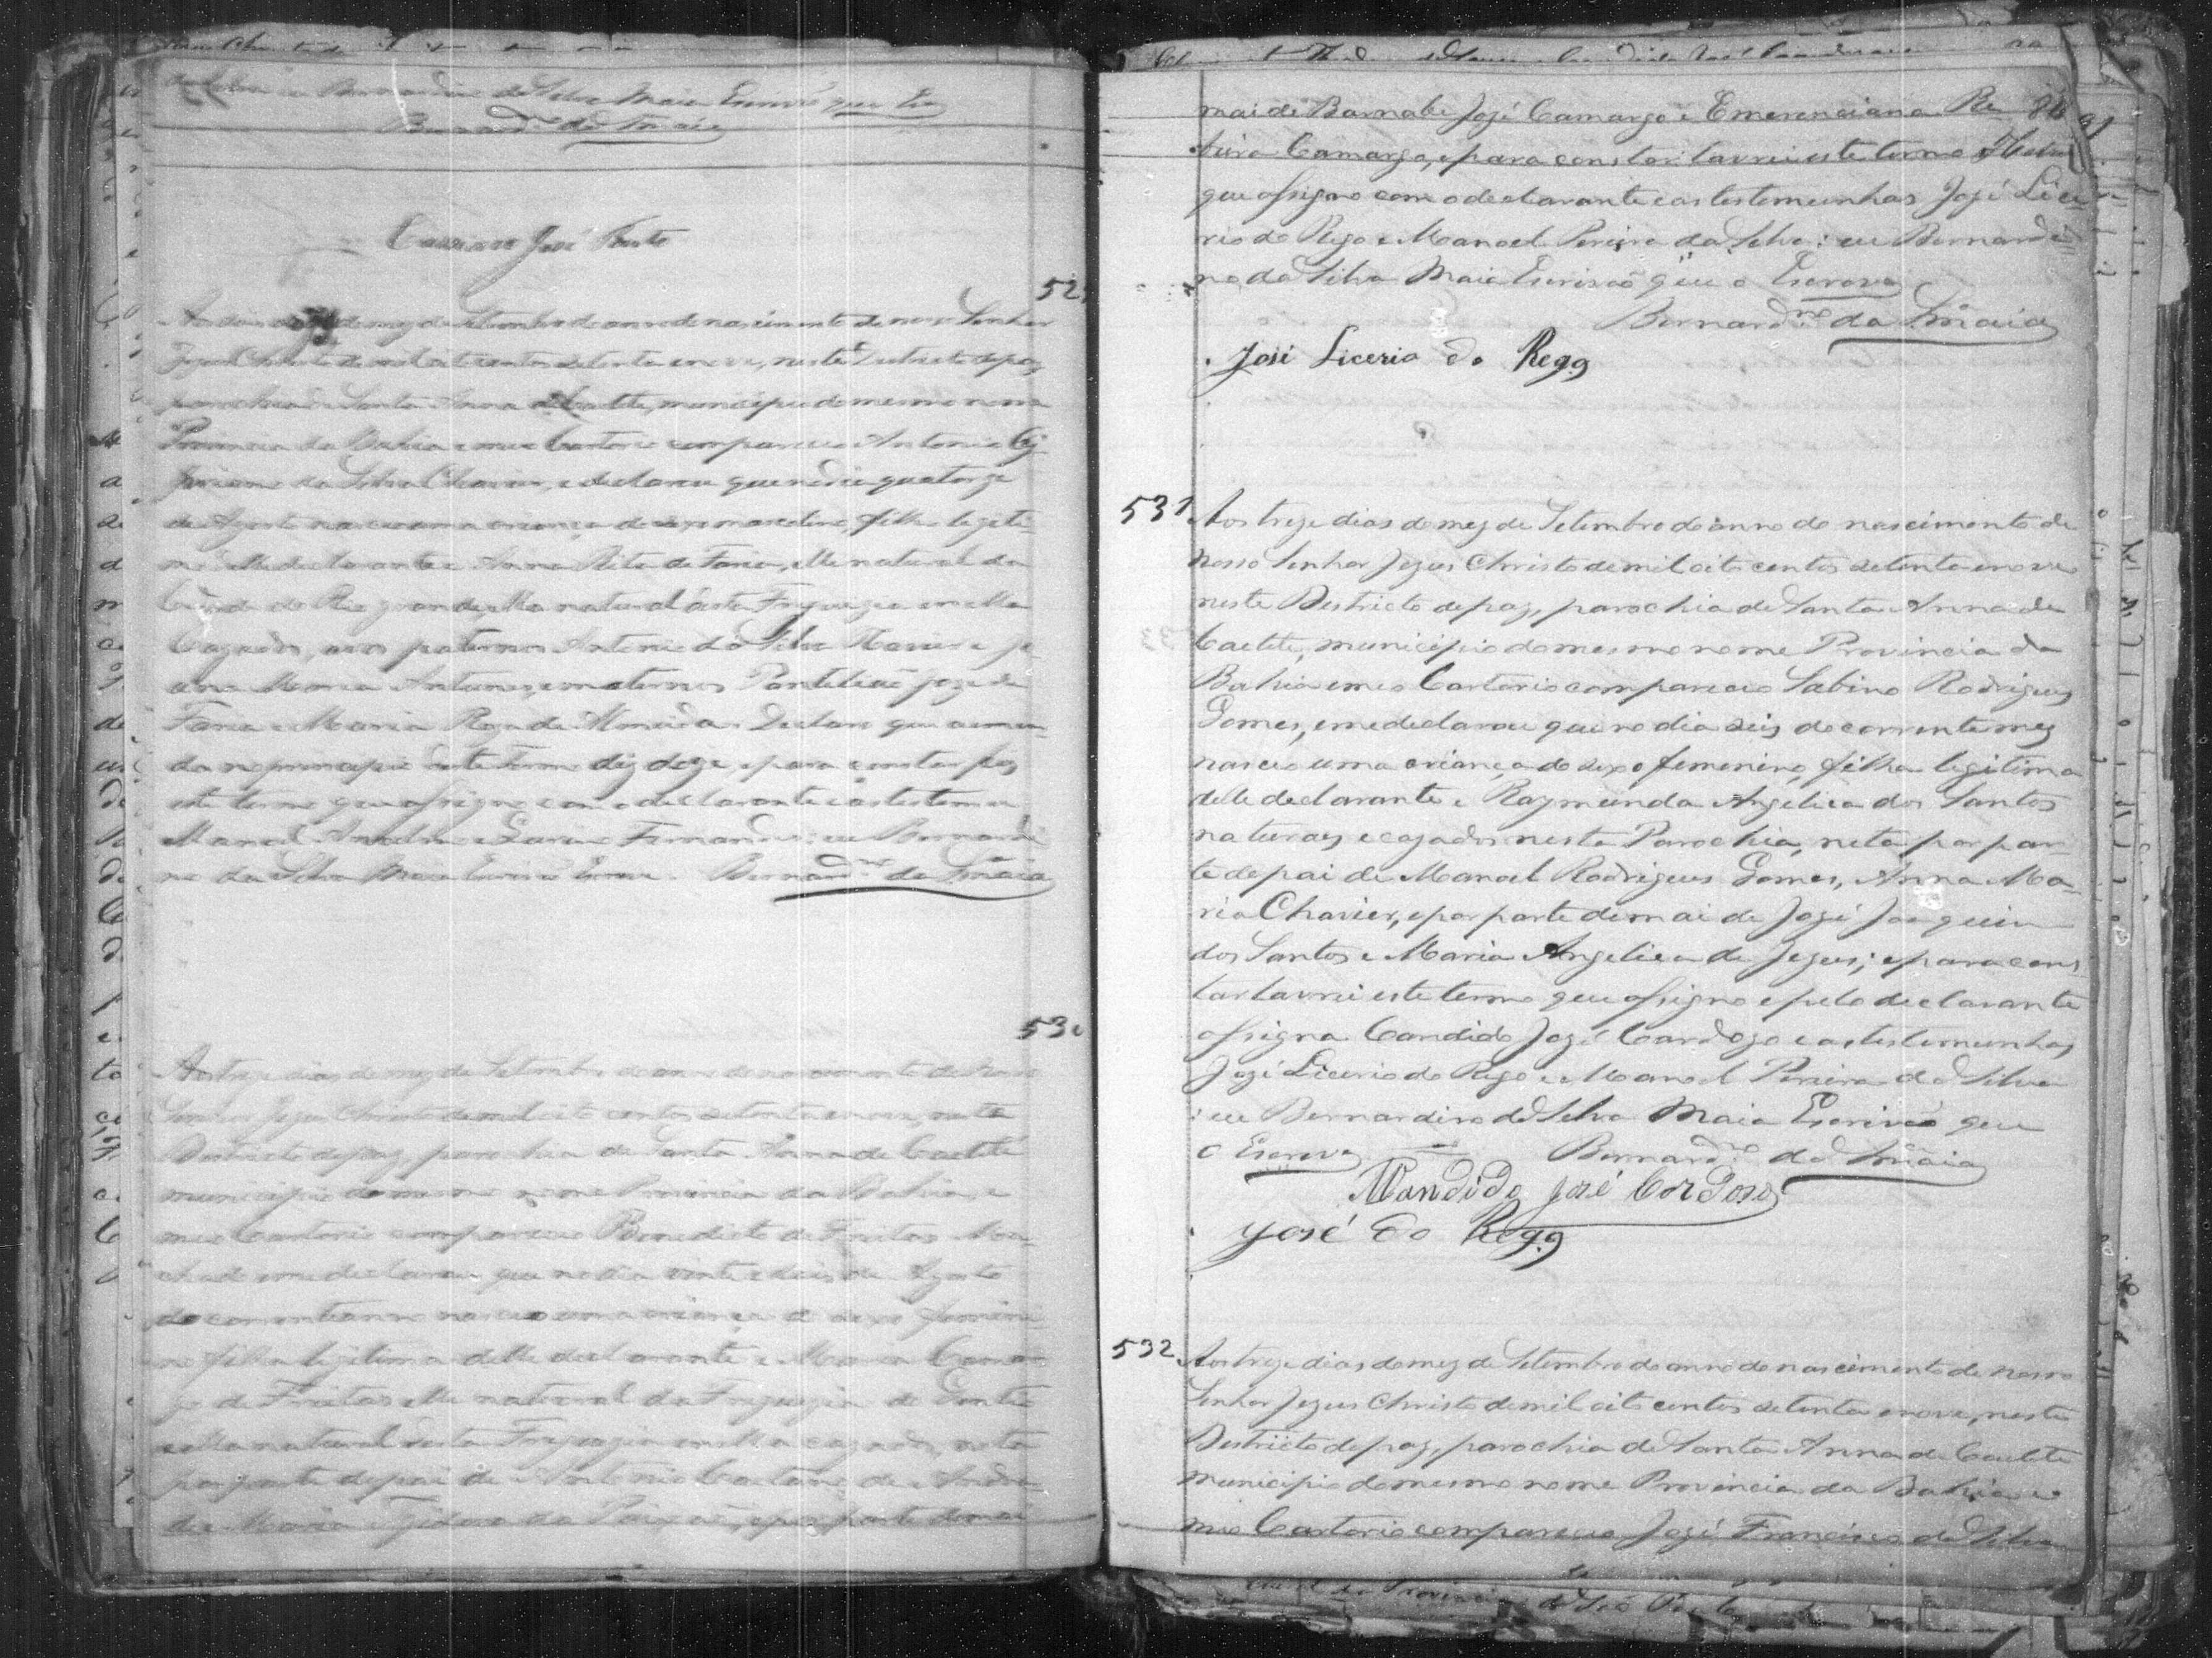 Bernardino da Silva Maia Escrivão que
Bernard.no da S.a Maia
Cassiano José
52
do mez de Setembro do anno do nascimento de nosso Senhor
Jezus Christo de mil oito centos setenta e nove, neste Destricto de paz
parochia de Santa Anna de Caetité, municipio do mesmo nome
Provincia da Bahia em meu Cartorio compareceo Antonio Cy
priano da Silva e declarou que no dia quatorze
de Agosto nasceo uma criança de sexo masculino, filho legiti
mo delle declarante e Anna Rita de Faria, elle natural da
do Rio grande, ella natural desta Freguezia e nella
Cazados, avos paternos Antonio da Silva
Maria Antunes e maternos Pantilião Joze de
Faria e Maria Roza de Almeida. Declaro que a emen
da no principio deste termo diz doze, e para constar fiz
este termo que assigno com o declarante e as testemu
Manoel Fernandes: eu Bernardi
no da Silva Maia Escrivão Escrevi. Bernard.no da S.a Maia
530
Aos treze dias do mez de Setembro do anno do nascimento de Nosso
Senhor Jezus Christo de mil oito centos setenta e nove, neste
Destricto de paz, parochia de Santa Anna de Caetité
municipio do mesmo nome Provincia da Bahia e
meu Cartorio compareceo Benedicto de Freitas Ma
chado e me declarou que no dia vinte e seis de Agosto
do corrente anno nasceo uma criança do sexo femini
no filha legitima delle declarante e Maria Camar
go de Freitas elle natural da Freguezia de
e ella natural desta Freguezia e nella cazados, neta
por parte de pai de Antonio Caetano de Andra
de e Maria Izidora da Paixão, e por parte de mai
mai de Barnabe Jozé Camargo e Emerenciana Re
Camargo, e para constar lavrei este termo
que assigno com o declarante e as testemunhas Jozé Lice
rio do Rego e Manoel Pereira da Silva: eu Bernardi
no da Silva Maia Escrivão que o Escrevy
Bernard.no da S.a Maia
José Licerio do Rego
531
Aos treze dias do mez de Setembro do anno do nascimento de
Nosso Senhor Jezus Christo de mil oito centos setenta e nove
neste Destricto de paz, parochia de Santa Anna de
Caetité, municipio do mesmo nome Provincia da
Bahia e meo Cartorio compareceo Sabino Rodrigues
Gomes, e me declarou que no dia seis do corrente mez
nasceo uma criança do sexo femenino, filha legitima
delle declarante e Raymunda Angelica dos Santos
naturaes e cazados nesta Parochia, neta por par
te de pai de Manoel Rodrigues Gomes, Anna Ma
ria Chavier, e por parte de mai de Jozé Joaquim
dos Santos e Maria Angelica de Jezus; e para cons
tar lavrei este termo que assigno e pelo declarante
assigna Candido Jozé Cardozo e as testemunhas
Jozé Licerio do Rego e Manoel Pereira da Silva
: eu Bernardino da Silva Maia Escrivão que
o Escrevy Bernard.no da S.a Maia
Candido José Cordoso
José do Rego
532
Aos treze dias do mez de Setembro do anno do nascimento de nosso
Senhor Jezus Christo de mil oito centos setenta e nove, neste
Destricto de paz, parochia de Santa Anna de Caetité
municipio do mesmo nome Provincia da Bahia e
meo Cartorio compareceo Jozé Francisco da Silva